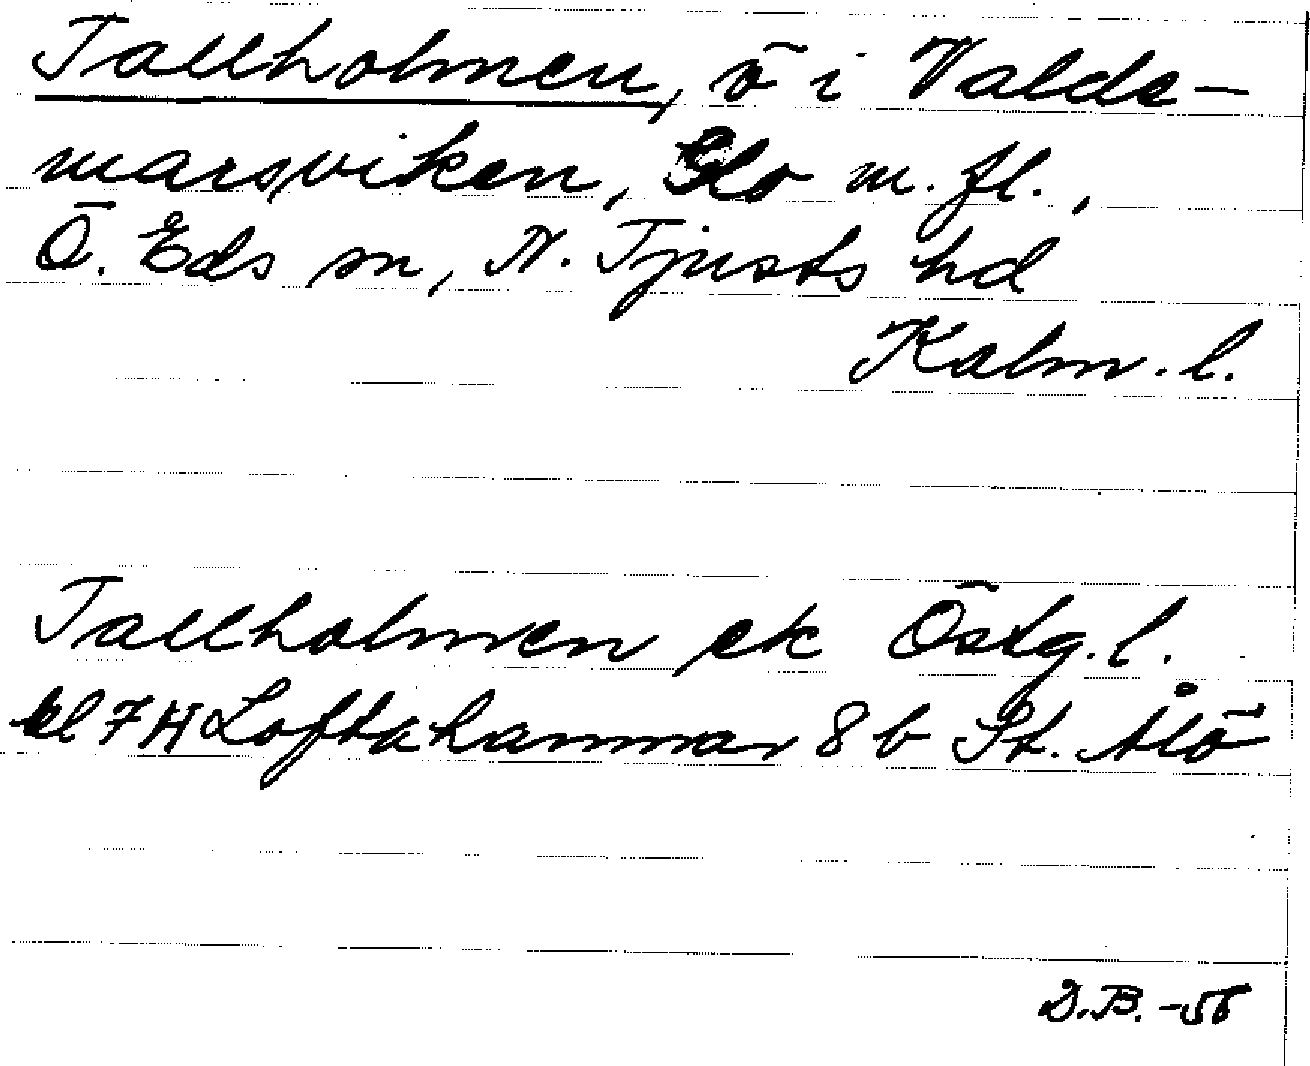 Tallholmen, ö i Valde-
marsviken, Slo m. fl.,
Ö. Eds sn, N. Tjusts hd
Kalm. l.
Tallholmen ek Östg. l.
bl 7H Loftahammar 8b St. Ålö
D.B. -56